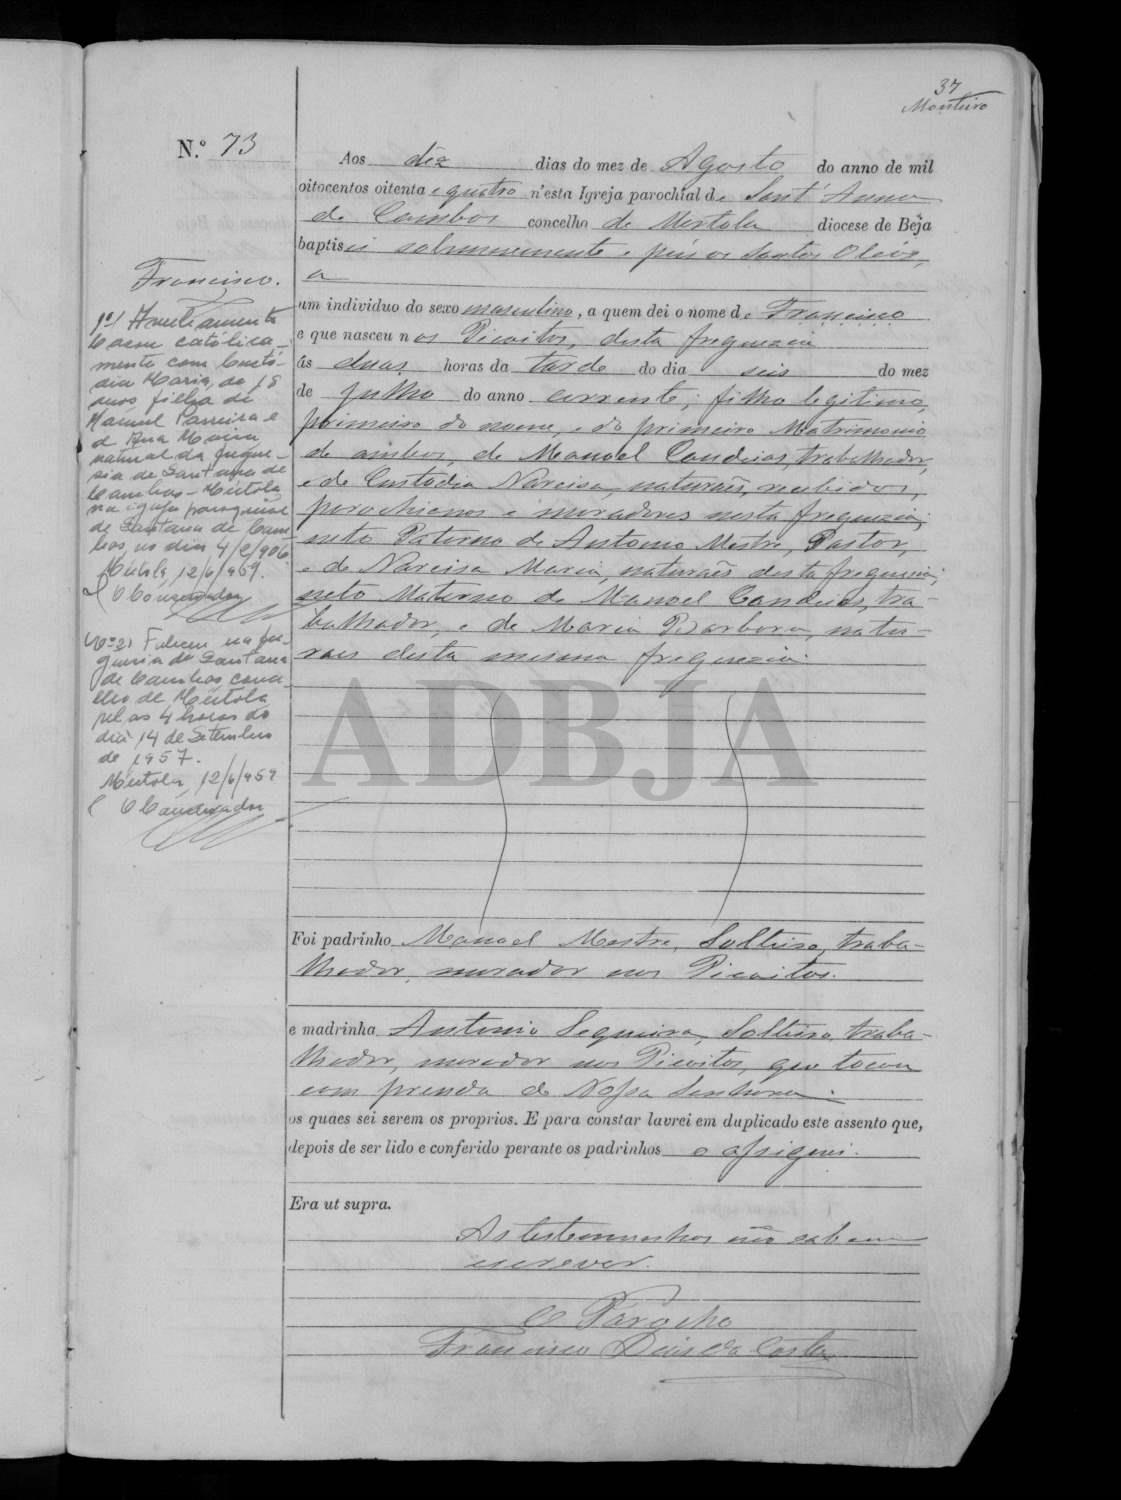 37
Monteiro
N.º 73
Aos déz dias do mez de Agosto do anno de mil
oitocentos oitenta e quatro n'esta Igreja parochial de Sant'Anna
de Cambas concelho de Mertola diocese de Beja
baptisei solemnemente e puz os Santos Oleos,
a
um individuo do sexo masculino, a quem dei o nome de Francisco
e que nasceu nos Picoitos, desta freguezia
ás duas horas da tarde do dia seis do mez
de Julho do anno corrente, filho legitimo,
primeiro do nome, e do primeiro Matrimonio
de ambos, de Manoel Candeias, trabalhador,
e de Custodia Narcisa, naturaes, recebidos,
parochianos e moradores nesta freguezia;
neto Paterno de Antonio Mestre, Pastor,
e de Narcisa Maria, naturaes desta freguezia;
neto Materno de Manoel Candeias, tra-
balhador, e de Maria Barbora, natu-
raes desta mesma freguezia.
Foi padrinho Manoel Mestre, Solteiro, traba-
lhador, morador nos Picoitos.
e madrinha Antonio Sequeira, Solteiro, traba-
lhador, morador nos Picoitos, que tocou
com prenda de Nossa Senhora.
os quaes sei serem os proprios. E para constar lavrei em duplicado este assento que,
depois de ser lido e conferido perante os padrinhos o assignei.
Era ut supra.
As testemunhas não sabem
escrever.
O Parocho
Francisco Dias da Costa
Francisco.
nº 1
Casou católica-
mente com Custó-
dia Maria, de 18
anos filha de
Manuel Parreira e
de Ana Maria
natural da fregue-
sia de Santana de
Cambas - Mértola
na igreja paroquial
de Santana de Cam-
bas, no dia 4/2/906
Mértola, 12/6/959.
O Conservador
nº 2) Faleceu na fre-
guesia de Santana
de Cambas conce-
lho de Mértola
pelas 4 horas do
dia 14 de Setembro
de 1957.
Mértola, 12/6/959
O Conservador
ADBJA